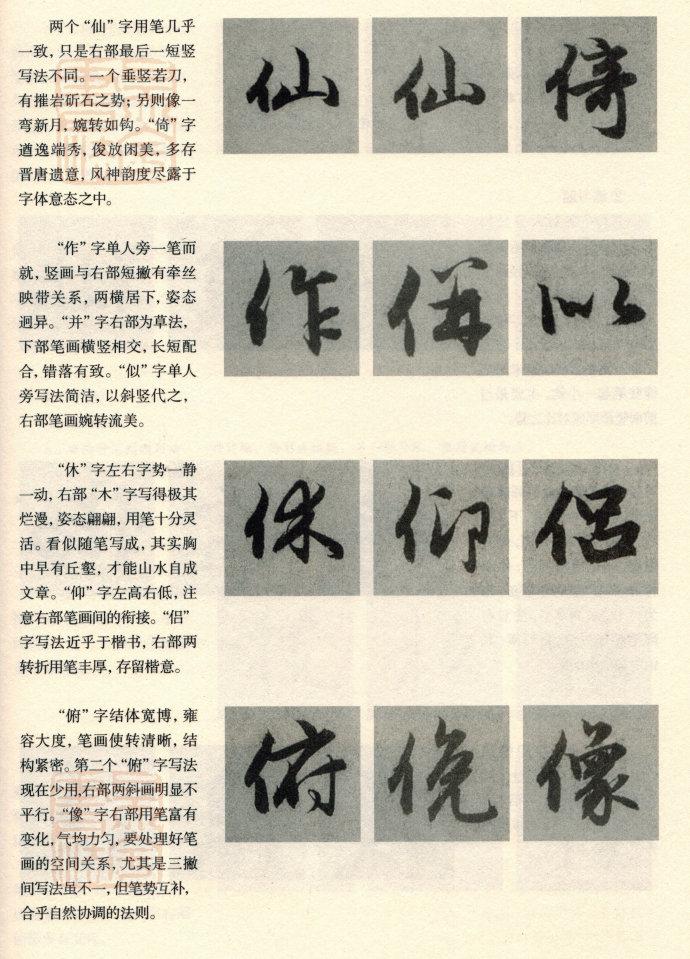 两个“仙”字用笔几乎
一致，只是右部最后一短竖
写法不同。一个垂竖若刀，
有摧岩斫石之势；另则像一
弯新月，婉转如钩。“倚”字
遒逸端秀，俊放闲美，多存
晋唐遗意，风神韵度尽露于
字体意态之中。
仙 仙 倚
“作”字单人旁一笔而
就，竖画与右部短撇有牵丝
映带关系，两横居下，姿态
迥异。“并”字右部为草法，
下部笔画横竖相交，长短配
合，错落有致。“似”字单人
旁写法简洁，以斜竖代之，
右部笔画婉转流美。
作 併 似
“休”字左右字势一静
一动，右部“木”字写得极其
烂漫，姿态翩翩，用笔十分灵
活。看似随笔写成，其实胸
中早有丘壑，才能山水自成
文章。“仰”字左高右低，注
意右部笔画间的衔接。“侣”
字写法近乎于楷书，右部两
转折用笔丰厚，存留楷意。
休 仰 侣
“俯”字结体宽博，雍
容大度，笔画使转清晰，结
构紧密。第二个“俯”字写法
现在少用，右部两斜画明显不
平行。“像”字右部用笔富有
变化，气均力匀，要处理好笔
画的空间关系，尤其是三撇
间写法虽不一，但笔势互补，
合乎自然协调的法则。
俯 俛 像